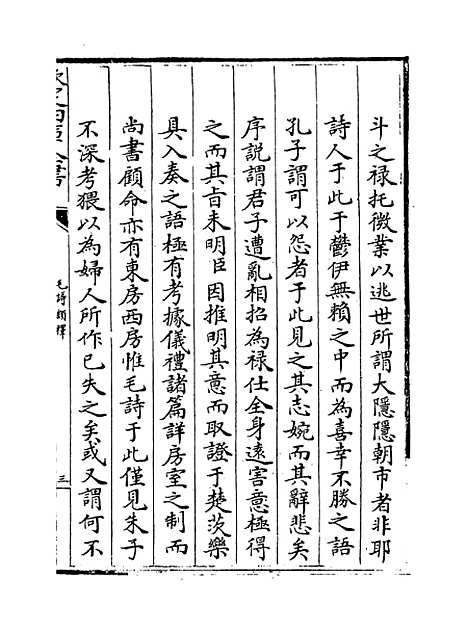 斗之禄托微業以逃世所謂大隱隱朝市者非耶
詩人于此于鬱伊無賴之中而為喜幸不勝之語
孔子謂可以怨者于此見之其志婉而其辭悲矣
序説謂君子遭亂相招為禄仕全身逺害意極得
之而其㫖未明臣因推明其意而取證于楚茨樂
具入奏之語極有考據儀禮諸篇詳房室之制而
尚書顧命亦有東房西房惟毛詩于此僅見朱子
不深考猥以為婦人所作已失之矣或又謂何不
欽定四庫全書
毛詩類釋
三